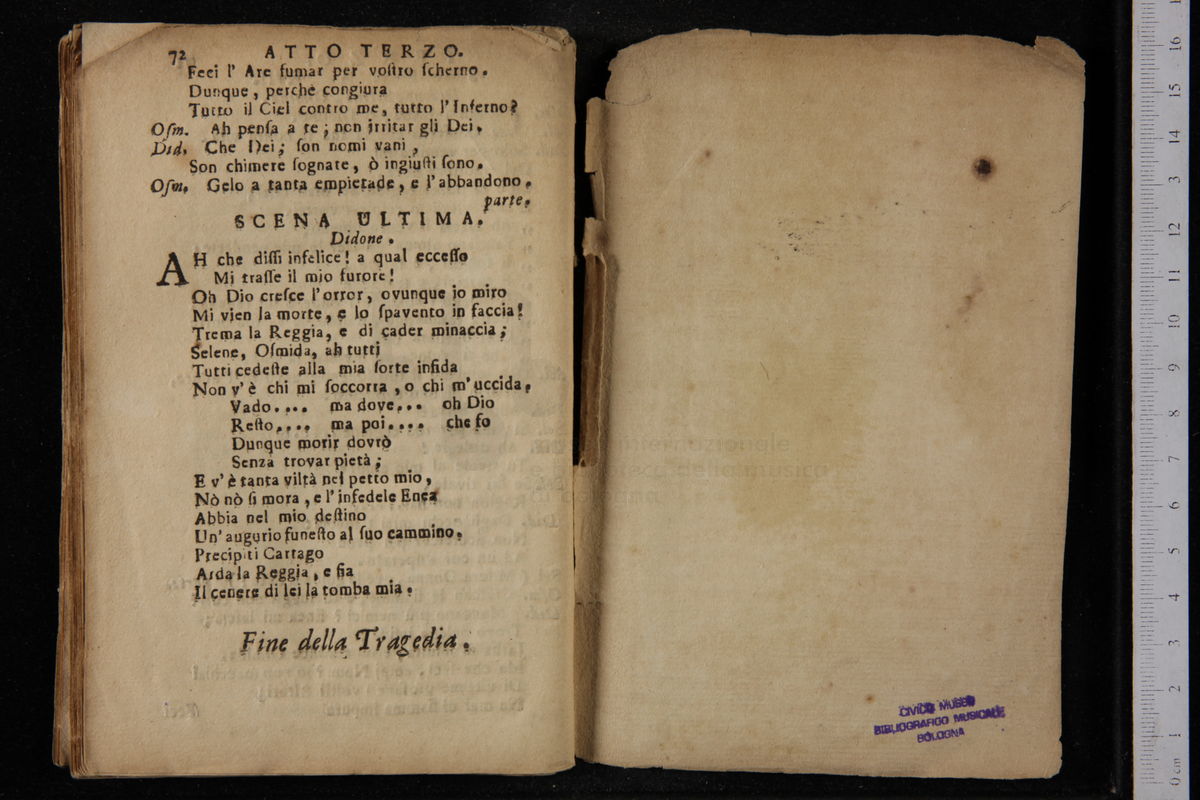 72 ATTO TERZO.
Feci l' Are fumar per voſtro ſcherno.
Dunque, perchè congiura
Tutto il Ciel contro me, tutto l' Inferno?
Oſm. Ah penſa a te; non irritar gli Dei.
Did. Che Dei; ſon nomi vani,
Son chimere ſognate, ò ingiuſti ſono.
Oſm. Gelo a tanta empietade, e l'abbandono.
parte.
SCENA ULTIMA.
Didone.
AH che diſſi infelice! a qual ecceſſo
Mi traſſe il mio furore!
Oh Dio creſce l'orror, ovunque io miro
Mi vien la morte, e lo ſpavento in faccia!
Trema la Reggia, e di cader minaccia;
Selene, Oſmida, ah tutti
Tutti cedeſte alla mia ſorte infida
Non v'è chi mi ſoccorra, o chi m'uccida.
Vado.... ma dove... oh Dio
Reſto.... ma poi.... che fo
Dunque morir dovrò
Senza trovar pietà;
E v'è tanta viltà nel petto mio,
Nò nò ſi mora, e l'infedele Enea
Abbia nel mio deſtino
Un' augurio funeſto al ſuo cammino.
Precipiti Cartago
Arda la Reggia, e ſia
Il cenere di lei la tomba mia.
Fine della Tragedia.
internazionale
e biblioteca della musica
di bologna
CIVICO MUSEO
BIBLIOGRAFICO MUSICALE
BOLOGNA
0 cm 1 2 3 4 5 6 7 8 9 10 11 12 13 14 15 16